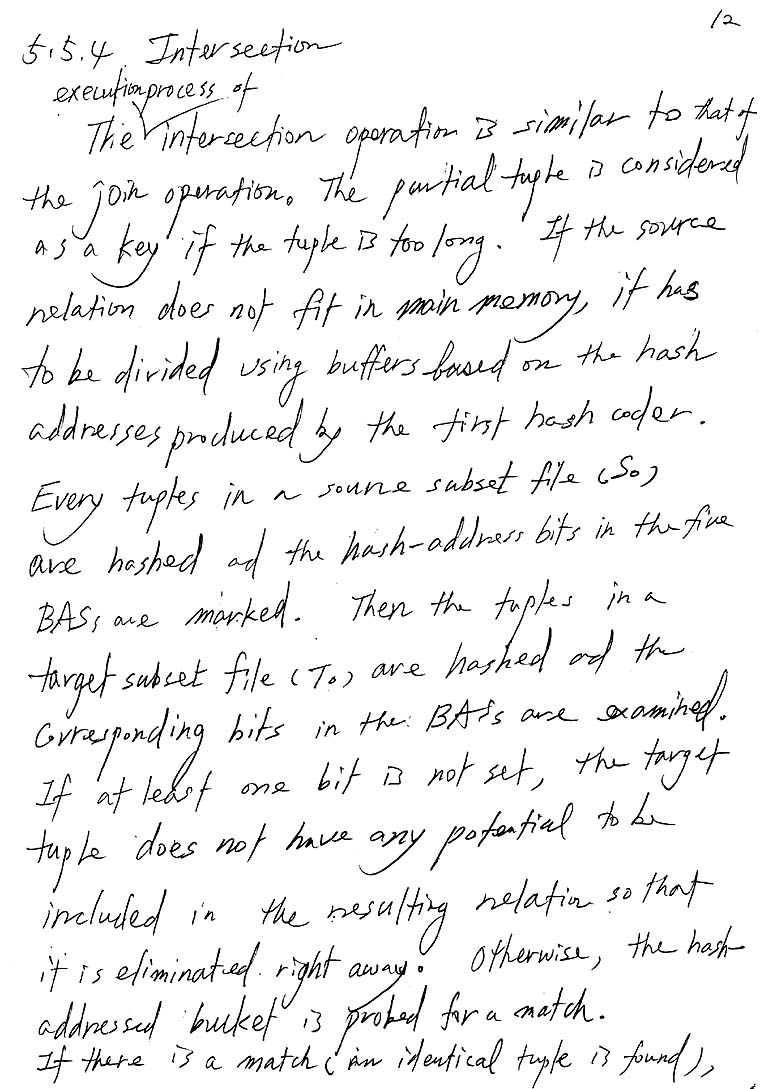 12
5.5.4 Intersection
execution process of
The intersection operation is similar to that of
the join operation. The partial tuple is considered
as a key if the tuple is too long. If the source
relation does not fit in main memory, it has
to be divided using buffers based on the hash
addresses produced by the first hash coder.
Every tuples in a source subset file (So)
are hashed ad the hash-address bits in the five
BASs are marked. Then the tuples in a
target subset file (To) are hashed ad the
Corresponding bits in the BASs are examined.
If at least one bit is not set, the target
tuple does not have any potential to be
included in the resulting relation so that
it is eliminated right away. Otherwise, the hash-
addressed bucket is probed for a match.
If there is a match (an identical tuple is found),